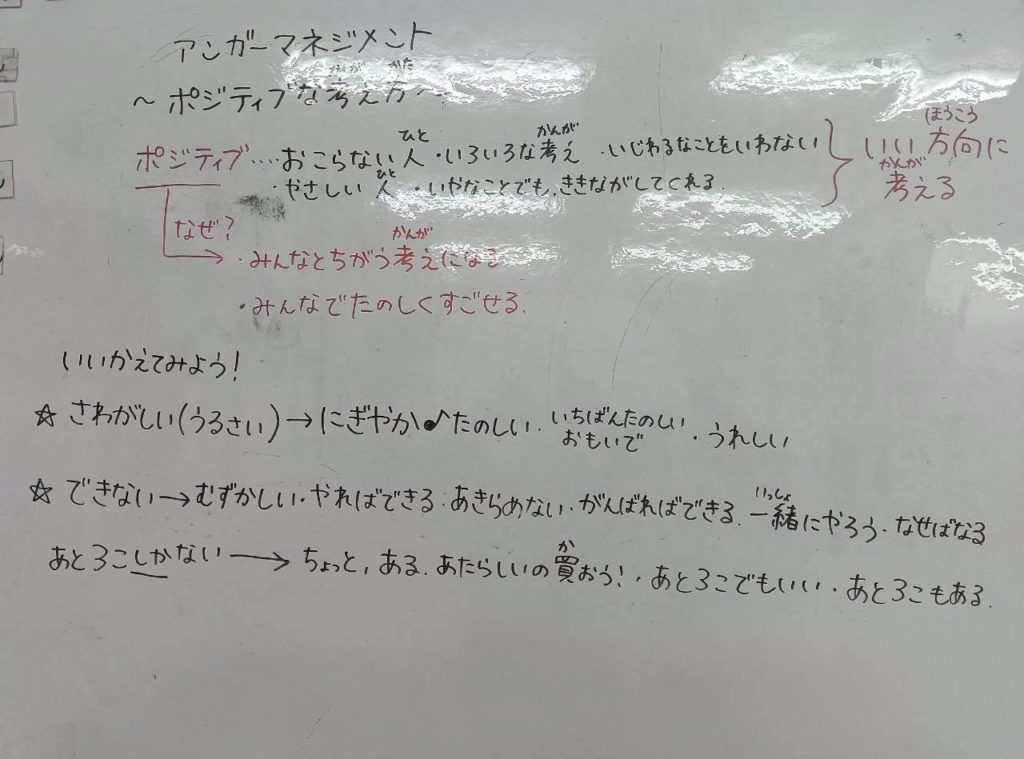 アンガーマネジメント
～ポジティブな考え方～
ポジティブ‥‥おこらない人・いろいろな考え・いじわるなことをいわない
・やさしい人・いやなことでも、ききながしてくれる。
いい方向に
考える
なぜ?
・みんなとちがう考えになる
・みんなでたのしくすごせる。
いいかえてみよう!
☆さわがしい(うるさい)→にぎやか♪たのしい・いちばんたのしいおもいで・うれしい
☆できない→むずかしい・やればできる・あきらめない・がんばればできる・一緒にやろう・なせばなる
あと3こしかない→ちょっと、ある。あたらしいの買おう!・あと3こでもいい・あと3こもある。